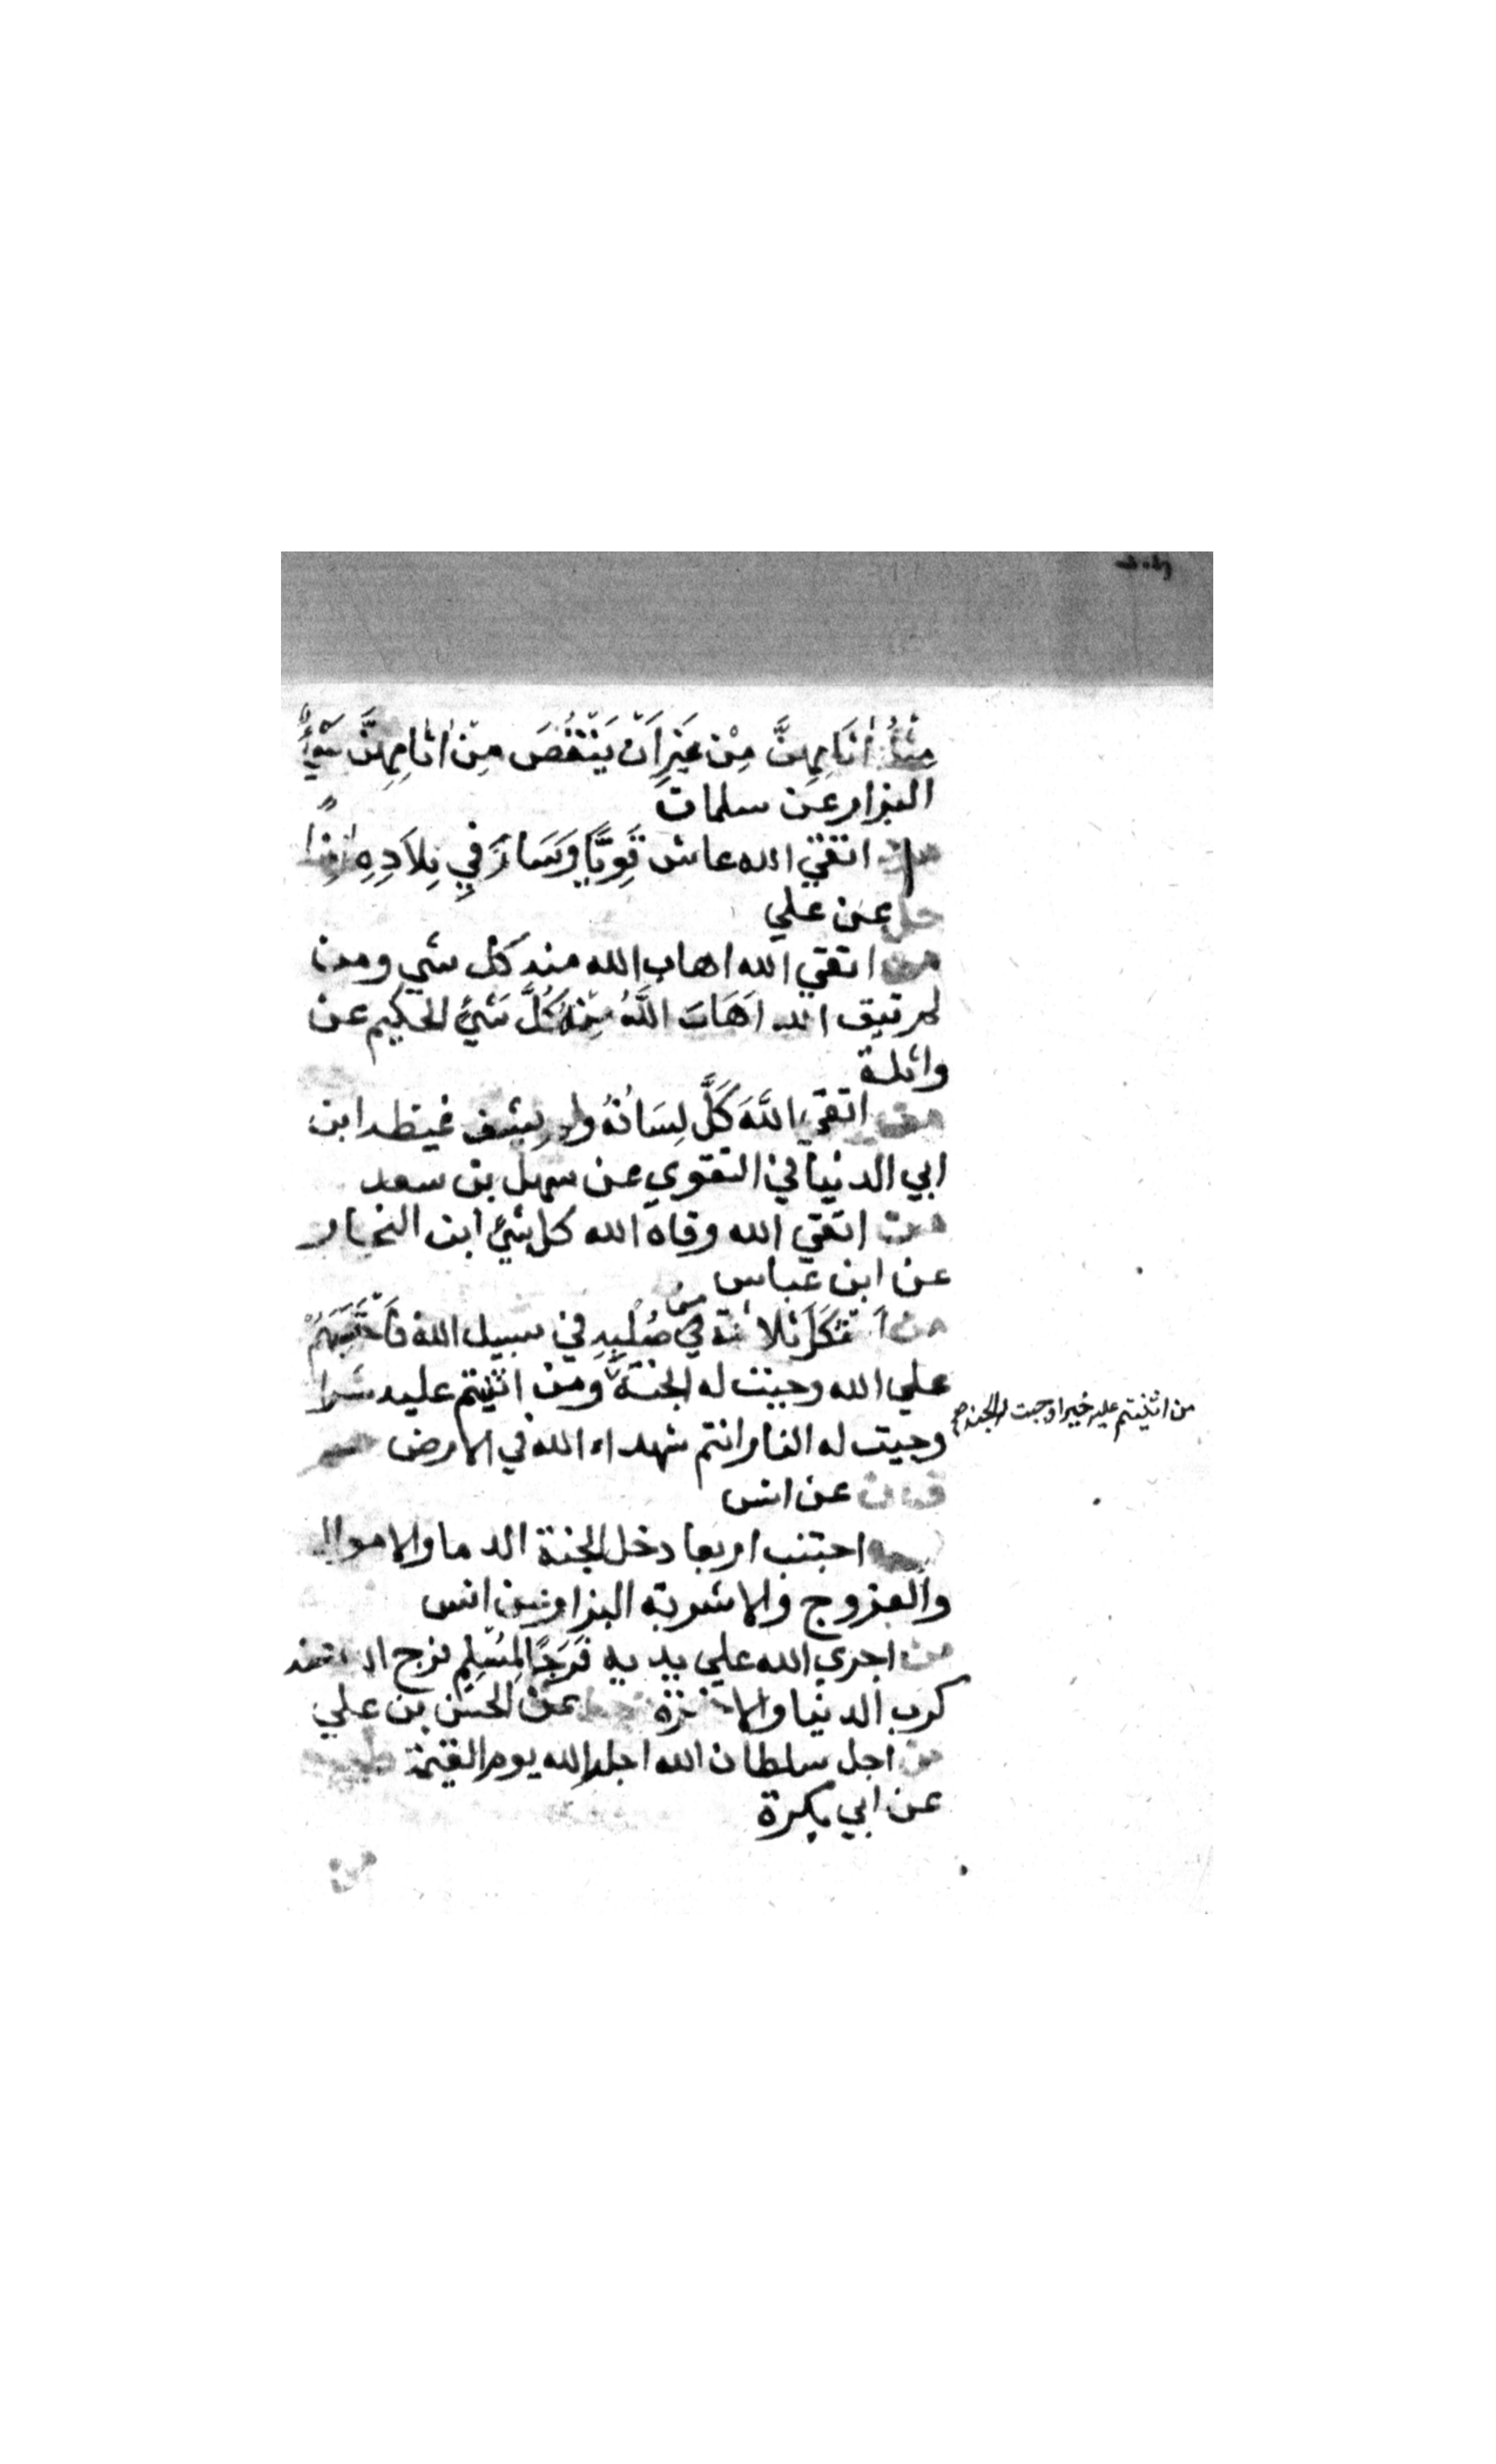 مِثْلُ اٰثَامِهِنَّ مِنْ غَيْرِ اَنْ يَنْقُصَ مِنْ اٰثَامِهِنَّ شَيْءٌ
البزار عن سلمان
من اتقي الله عاش قَوِيًّا وَسَارَ فِي بِلاَدِهِ اٰمِنًا
حل عن علي
من اتقي الله اهاب الله منه كل شي ومن
لم يتق الله اَهَابَ اللَّهُ مِنْهُ كُلَّ شَيْءٍ الحكيم عن
واثلة
من اتقي اللَّهَ كَلَّ لِسَانُهُ ولم يشف غيظه ابن
ابي الدنيا في التقوي عن سهل بن سعد
من اتقي الله وقاه الله كل شيء ابن النجار
عن ابن عباس
من اَثْكَلَ ثلاثة من صُلْبِهِ في سبيل الله فَاَحْتَسَبَهُمْ
علي الله وجبت له الجنة ومن اثنيتم عليه شرا
من اثنيتم عليه خيرا وجبت له الجنة صح
وجبت له النار انتم شهداء الله في الارض حم
ق ن عن انس
من اجتنب اربعا دخل الجنة الدما والاموال
والفروج والاشربة البزار عن انس
من اجري الله علي يديه فَرَجًا لِمُسْلِمٍ فرج الله عنه
كرب الدنيا والاخرة خط عن الحسن بن علي
من اجل سلطان الله اجله الله يوم القيمة طب
عن ابي بكرة
من